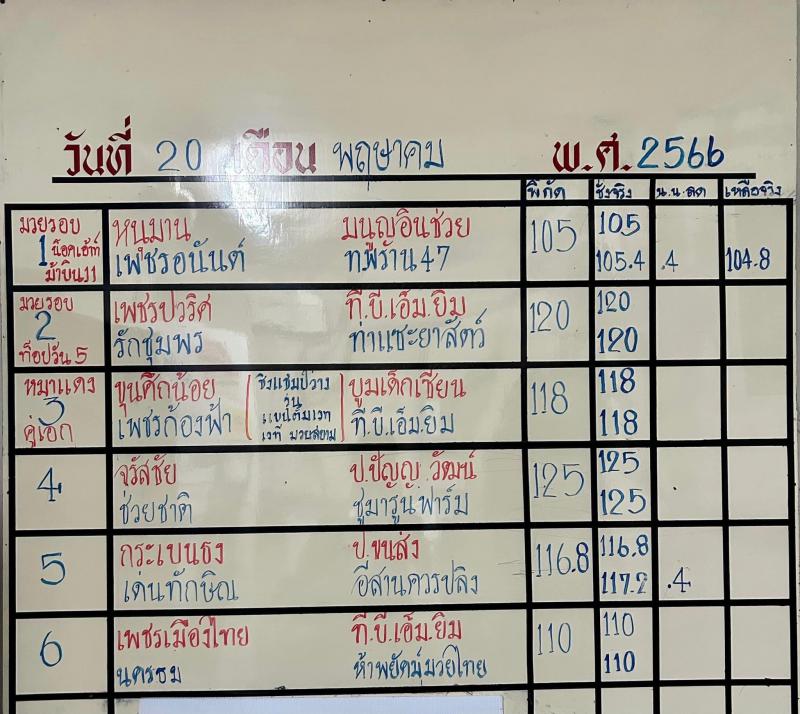 วันที่ 20 เดือน พฤษาคม พ.ศ. 2566
พิกัด ชั่งจริง น.น.ลด เหลือจริง
มวยรอบ
1 น็อคเอ้าท์
ม้าบิน 11
หนุมาน มนูญอินช่วย 105 105
เพ็ชรอนันต์ ทพ์ร้าน 47 105.4 .4 104.8
มวยรอบ
2
ท็อปวัน 5
เพชรปวริศ ที.บี.เอ็ม.ยิม 120 120
รักชุมพร ท่าแซะยาสัตว์ 120
หมาแดง
3
คู่เอก
ขุนศึกน้อย บูมเด็กเซียน 118 118
เพชรก้องฟ้า ที.บี.เอ็ม.ยิม 118
ชิงแชมป์ว่าง
รุ่น
แบนตั้มเวท
เวที มวยสยาม
4 จรัสชัย ป.ปัญญวัฒน์ 125 125
ช่วยชาติ ชูมารูนัฟาร์ม 125
5 กระเบนธง ป.ขนส่ง 116.8 116.8
เด่นทักษิณ อีสานควรปลิง 117.2 .4
6 เพชรเมืองไทย ที.บี.เอ็ม.ยิม 110 110
นครธม ห้าพยัคฆ์มวยไทย 110